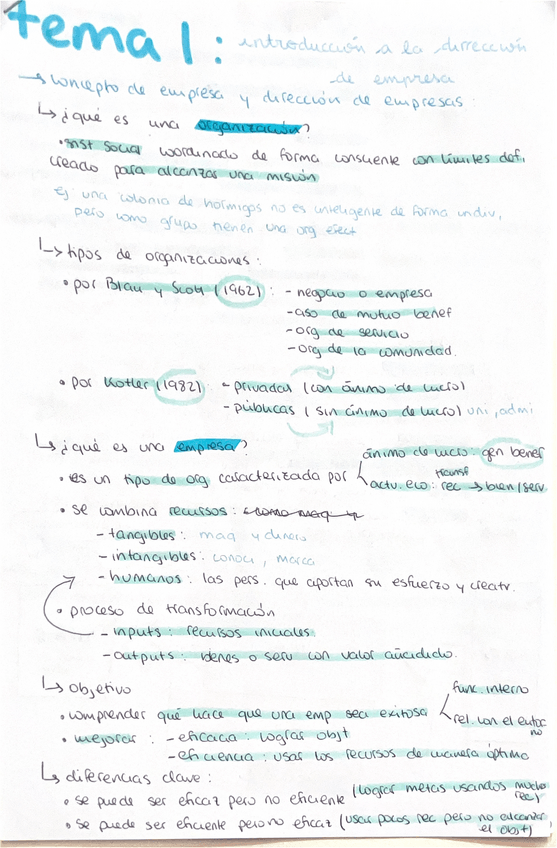 tema 1: introducción a la dirección
de empresa
→ concepto de empresa y dirección de empresas:
↳ ¿qué es una organización?
• inst social coordinado de forma consciente con límites def.
creado para alcanzar una misión
Ej una colonia de hormigas no es inteligente de forma indiv,
pero como grupo tienen una org efect
↳ tipos de organizaciones:
• por Blau y Scott (1962): - negocio o empresa
- aso de mutuo benef
- org de servicio
- org de la comunidad.
• por Kotler (1982): - privadas (con ánimo de lucro)
- públicas (sin ánimo de lucro) uni, admi
↳ ¿qué es una empresa?
ánimo de lucro: gen benef
• es un tipo de org caracterizada por
transf
actv. eco: rec → bien/serv
• se combina recursos: como maq y
- tangibles: maq y dinero
- intangibles: conoci, marca
- humanos: las pers. que aportan su esfuerzo y creatv.
• proceso de transformación
- inputs: recursos iniciales.
- outputs: bienes o serv con valor añadido.
↳ objetivo
func. interno
• comprender qué hace que una emp sea exitosa
rel. con el entorno
• mejorar: - eficacia: lograr objt
- eficiencia: usar los recursos de manera óptima
↳ diferencias clave:
• se puede ser eficaz pero no eficiente (lograr metas usandos mucho
rec)
• se puede ser eficiente pero no eficaz (usar pocos rec pero no alcanzar
el objt)